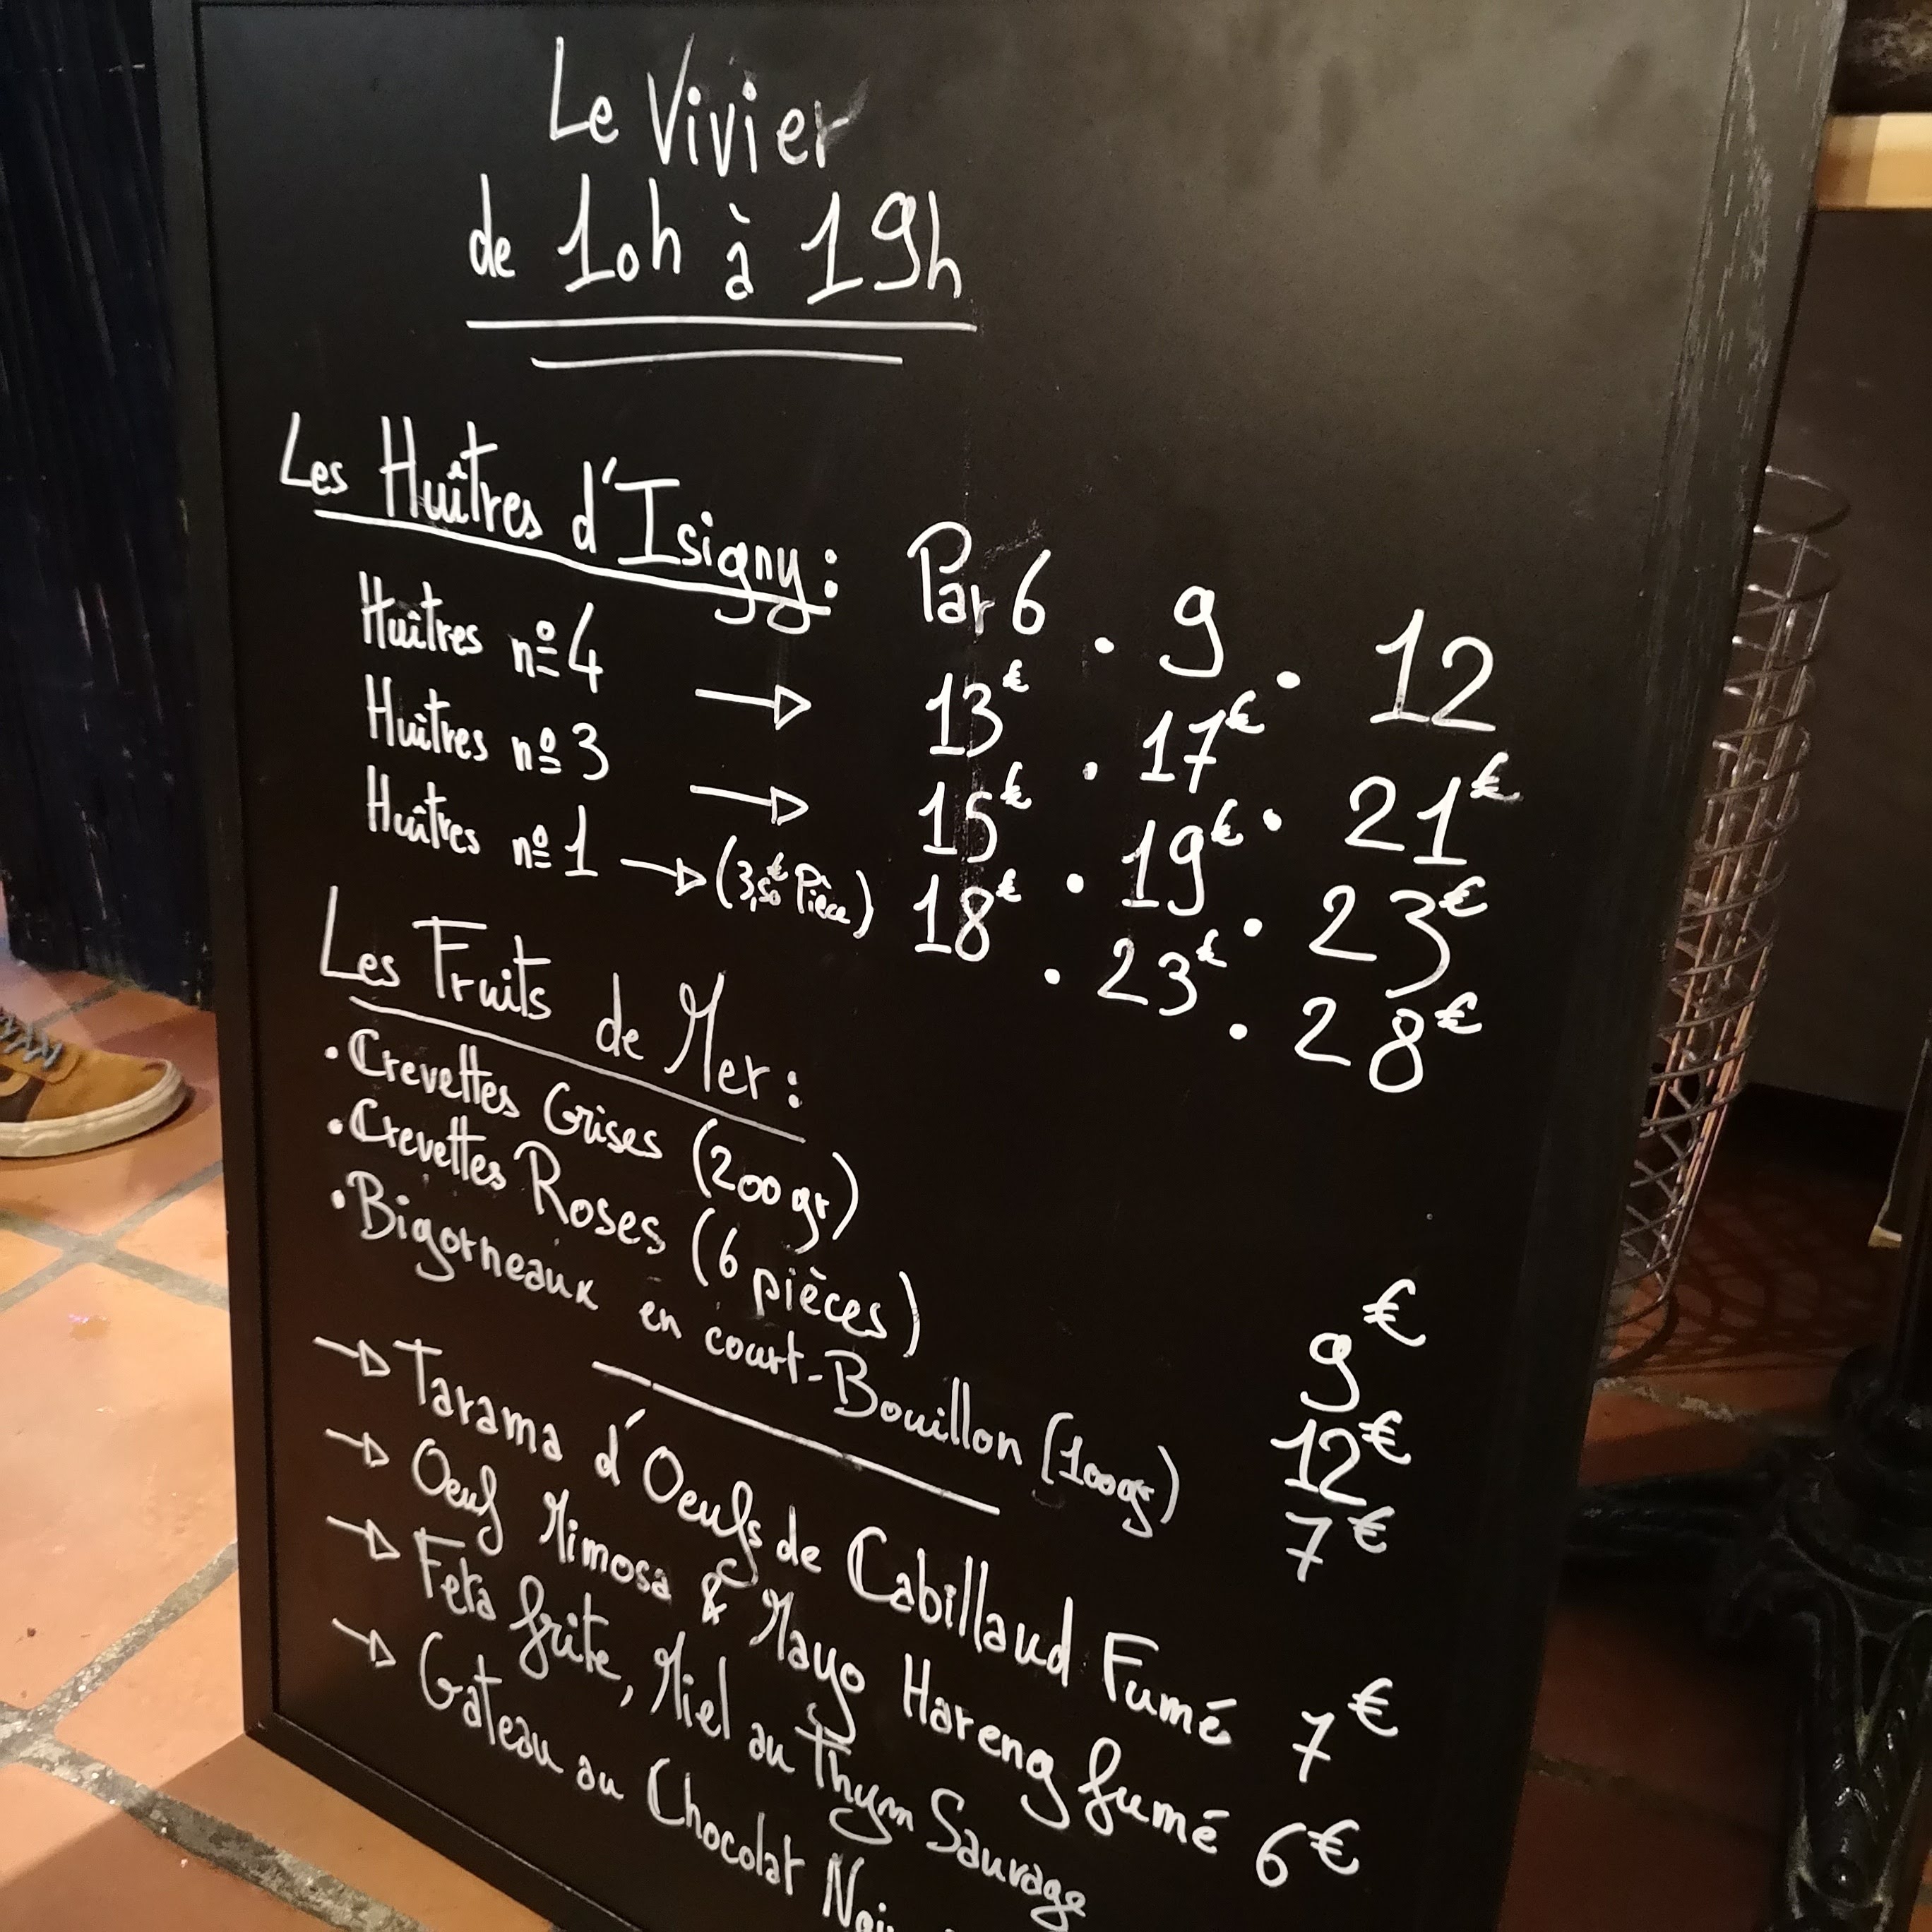 Le Vivier
de 10h à 19h
Les Huîtres d'Isigny : Par 6 . 9 . 12
Huîtres nº 4 → 13€ . 17€ . 21€
Huîtres nº 3 → 15€ . 19€ . 23€
Huîtres nº 1 → (3,50€ Pièce) 18€ . 23€ . 28€
Les Fruits de Mer :
• Crevettes Grises (200gr) 9€
• Crevettes Roses (6 pièces) 12€
• Bigorneaux en court-Bouillon (100gr) 7€
→ Tarama d'Oeufs de Cabillaud Fumé 7€
→ Oeuf Mimosa & Mayo Hareng fumé 6€
→ Feta frite, Miel au Thym Sauvage
→ Gateau au Chocolat